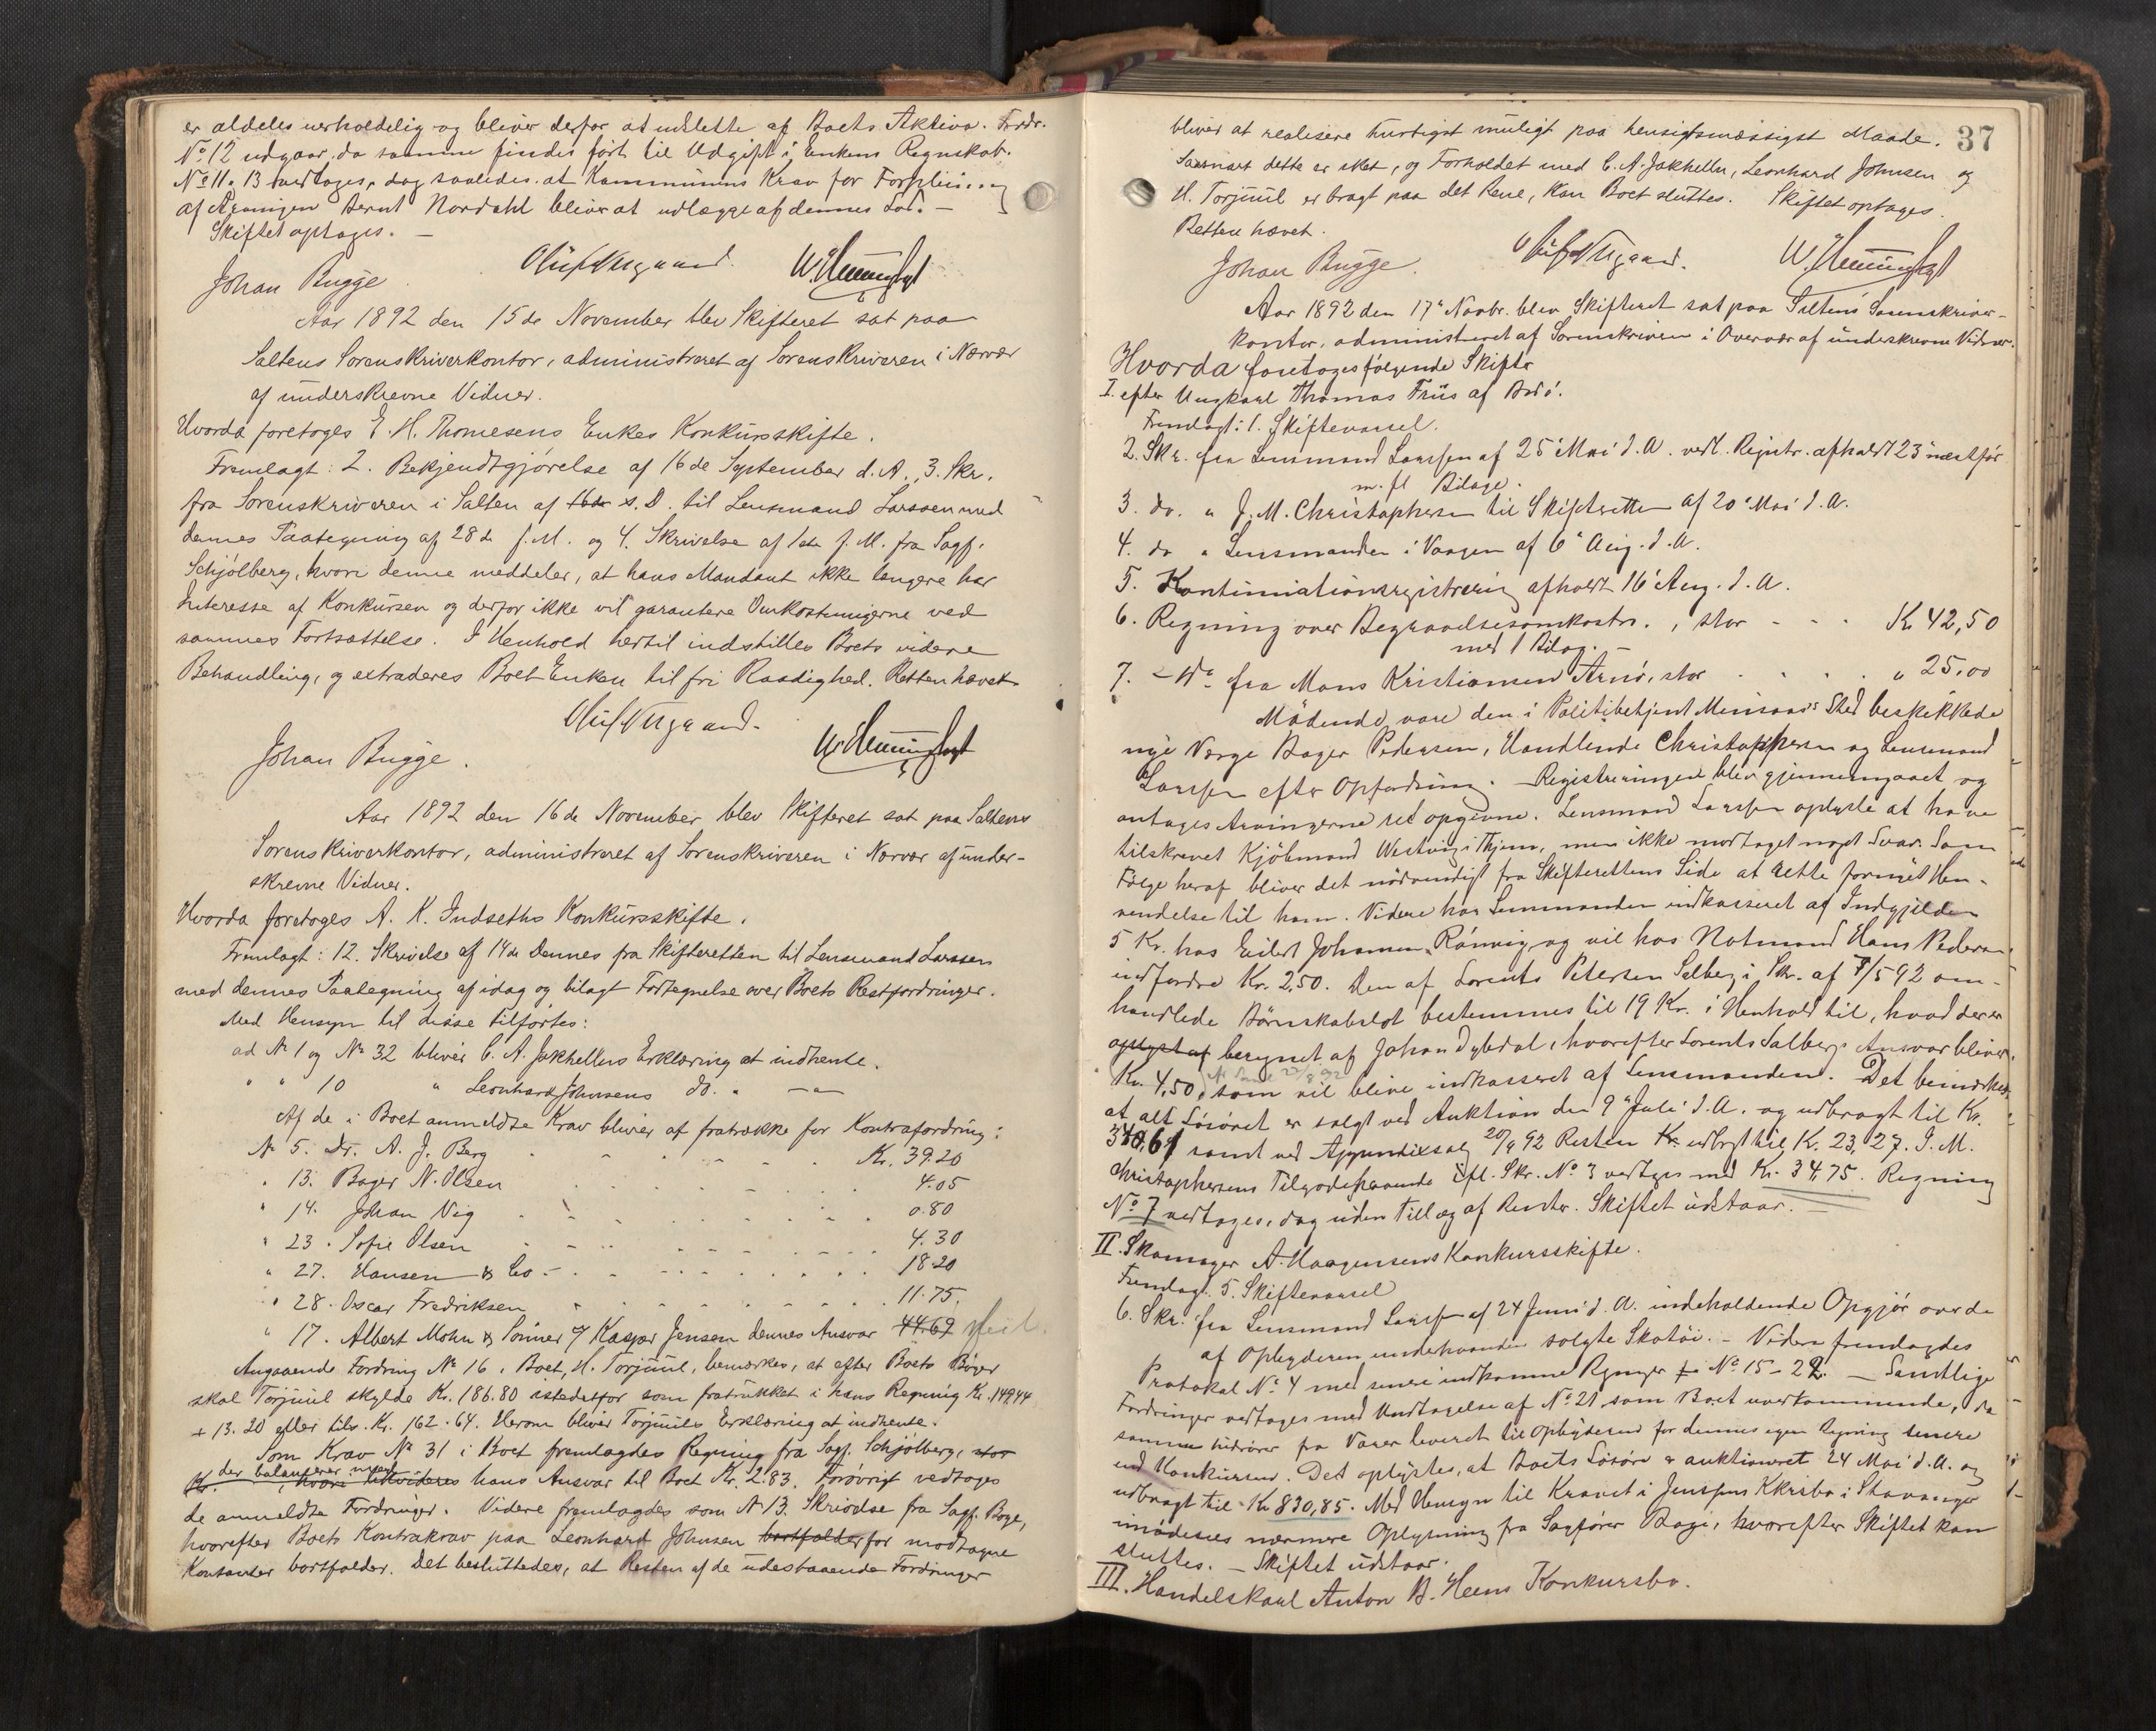 er aldeles uerholdelig og bliver derfor at udslette af Boets Aktiva. Fordr.
No 12 udgaar, da samme findes ført til Udgift i Enkens Regnskab.
No 11 & 13 vedtages, dog saaledes at Kommunens Krav for Forpleining
af Arvingen Bernt Nordahl bliver at udlægge af dennes Lod. —
Skiftet optages. —
Johan Bugge Oluf Aagaard. W.
Aar 1892 den 15de November blev Skifteret sat paa
Saltens Sorenskriverkontor, administreret af Sorenskriveren i Nærvær
af underskrevne Vidner.
Hvorda foretoges E. H. Thomesens Enkes Konkursskifte.
Fremlagt: 2. Bekjendtgjørelse af 16de September d. A., 3. Skr.
fra Sorenskriveren i Salten af 16de s. D. til Lensmand Larssen med
dennes Paategning af 28de f. M. og 4. Skrivelse af 1ste f. M. fra Sagf.
Schjølberg, hvori denne meddeler, at hans Mandant ikke længere har
Interesse af Konkursen og derfor ikke vil garantere Omkostningerne ved
sammes Fortsættelse. I Henhold hertil indstilles Boets videre
Behandling, og extraderes Boet Enken til fri Raadighed. Retten hævet
Johan Bugge. Oluf Aagaard. W.
Aar 1892 den 16de November blev Skifteret sat paa Saltens
Sorenskriverkontor, administreret af Sorenskriveren i Nærvær af under-
skrevne Vidner.
Hvorda foretoges A. K. Indseths Konkursskifte.
Fremlagt: 12. Skrivelse af 14de dennes fra Skifteretten til Lensmand Larssen
med dennes Paategning af idag og bilagt Fortegnelse over Boets Restfordringer.
Med Hensyn til disse tilførtes:
ad No 1 og No 32 bliver C. A. Jakhellns Erklæring at indhente.
" " 10 " Leonhard Johnsens do. " — " —
Af de i Boet anmeldte Krav bliver at fratrække for Kontrafordring:
No 5. Dr. A. J. Berg Kr. 39.20
" 13. Bager N. Olsen 4.05
" 14. Johan Vig 0.80
" 23. Sofie Olsen 4.30
" 27. Hansen & Co. 18.20
" 28. Oscar Fredriksen 11.75
" 17. Albert Mohn & Sønner af Kaspar Jensen dennes Ansvar 44.67 feil.
Angaaende Fordring No 16 i Boet, H. Torjuul, bemærkes, at efter Boets Bøger
skal Torjuul skylde Kr. 186.80 istedetfor som fratrukket i hans Regning Kr. 149.44
+ 13.20 eller tils. Kr. 162.64. Herom bliver Torjuuls Erklæring at indhente.
Som Krav No 31 i Boet fremlagdes Regning fra Sagf. Schjølberg, stor
der balancerer med
Kr. , hvori likvideres hans Ansvar til Boet Kr. 2.83. Forøvrigt vedtages
de anmeldte Fordringer. Videre fremlagdes som No 13. Skrivelse fra Sagf. Boge,
hvorefter Boets Kontrakrav paa Leonhard Johnsen bortfalder for modtagne
Kontanter bortfalder. Det besluttedes, at Resten af de udestaaende Fordringer
37
bliver at realisere hurtigst muligt paa hensigtsmæssigst Maade.
Saasnart dette er sket, og Forholdet med C. A. Jakhelln, Leonhard Johnsen og
H. Torjuul er bragt paa det Rene, kan Boet sluttes. Skiftet optages.
Retten hævet.
Johan Bugge. Oluf Aagaard. W.
Aar 1892 den 17" Novbr. blev Skifteret sat paa Saltens Sorenskriver-
kontor, administreret af Sorenskriveren i Overvær af underskrevne Vidner.
Hvorda foretoges følgende Skifte
I. efter Ungkarl Thomas Friis af Bodø.
Fremlagt: 1. Skiftevarsel.
2. Skr. fra Lensmand Larssen af 25" Mai d. A. vedl. Registr. afholdt 23" næstfør
m. fl. Bilage.
3. do. " J. M. Christophersen til Skifteretten af 20" Mai d. A.
4. do " Lensmanden i Vaagen af 6" Aug. d. A.
5. Kontinuationsregistrering afholdt 16" Aug. d. A.
6. Regning over Begravelsesomkostn., stor - - - Kr 42,50
med 1 Bilag. —
7. — do fra Mons Kristiansen Arnø, stor " 25,00
Mødende vare den i Politibetjent Sted beskikkede
nye Værge Bager Pedersen, Handlende Christophersen og Lensmand
Larssen efter Opfordring. Registreringen blev gjennemgaaet og
antages Arvingerne ret opgivne. Lensmand Larssen oplyste at have
tilskrevet Kjøbmand Westvig i Thjem, men ikke modtaget noget Svar. Som
Følge heraf bliver det nødvendigt fra Skifterettens Side at rette fornyet Hen-
vendelse til ham. Videre har Lensmanden indkasseret af Indgjelden
5 Kr. hos Eilert Johansen, Rønvig og vil hos Notmand Hans Pedersen
indfordre Kr. 2,50. Den af Lorents Petersen Salberg i Skr. af 7/5 92 om-
handlede Børnskabslot bestemmes til 19 Kr. i Henhold til, hvad der er
oplyst af beregnet af Johan Dybdal, hvorefter Lorents Salbergs Ansvar bliver
Kr. 4,50, som vil blive indkasseret af Lensmanden. Det bemærkes,
at alt Løsøret er solgt ved Auktion den 9" Juli d. A. og udbragt til Kr.
340,61 samt ved Appendixsalg 20/9 92 Resten Kr. udbragt til Kr. 23,27. J. M.
Christophersens Tilgodehavende ifl. Skr. No 3 vedtages med Kr. 34,75. Regning
No 7 vedtages, dog uden Tillæg af Renter. Skiftet udstaar. —
II. Skomager A. Haagensens Konkursskifte.
Fremlagt. 5. Skiftevarsel
6. Skr. fra Lensmand Larssen af 24 Juni d. A. indeholdende Opgjør over de
af Opbyderen underhaanden solgte Skotøi. — Videre fremlagdes
Protokol No 4 med senere indkomne Regninger fr No 15 - 22. — Samtlige
Fordringer vedtages med Undtagelse af No 21 som Boet uvedkommende, da
samme hidrører fra Varer leveret til Opbyderen for dennes egen Regning senere
end Konkursen. Det oplystes, at Boets Løsøre er auktioneret 24 Mai d. A. og
udbragt til Kr 830,85. Med Hensyn til Kravet i Jenssens Kkrsbo i Stavanger
imødesees nærmere Oplysning fra Sagfører Boge, hvorefter Skiftet kan
sluttes. — Skiftet udstaar.
III. Handelskarl Anton B. Heens Konkursbo.